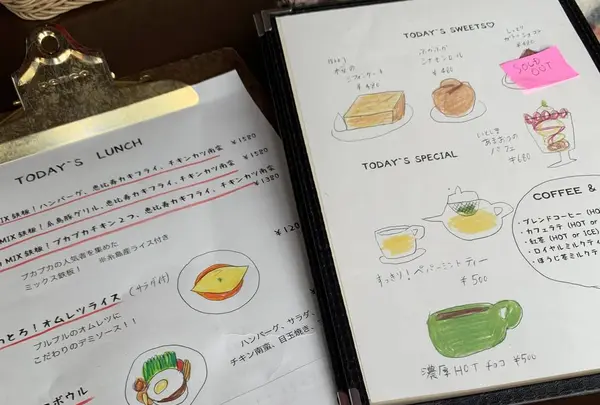 TODAY`S LUNCH
MIX鉄板！ハンバーグ、恵比寿カキフライ、チキンカツ南蛮 ¥1580
MIX鉄板！糸島豚グリル、恵比寿カキフライ、チキンカツ南蛮 ¥1580
MIX鉄板！プカプカチキン2つ、恵比寿カキフライ、チキンカツ南蛮 ¥1380
プカプカの人気者を集めた
ミックス鉄板！ ※糸島産ライス付き
とろ！オムレツライス (サラダ付)
プルプルのオムレツに
こだわりのデミソース！！
ハンバーグ、サラダ、
チキン南蛮、目玉焼き、
ボウル
TODAY`S SWEETS♡
シフォンケーキ
¥480
シナモンロール
¥460
しっとり
ガトーショコラ
¥480
SOLD OUT
いとしま
あまおうの
パフェ
¥680
TODAY`S SPECIAL
すっきり！ペパーミントティー
¥500
濃厚HOTチョコ ¥500
COFFEE &
・ブレンドコーヒー (HOT
・カフェラテ (HOT or
・紅茶 (HOT or ICE)
・ロイヤルミルクティ
・ほうじ茶ミルクティ